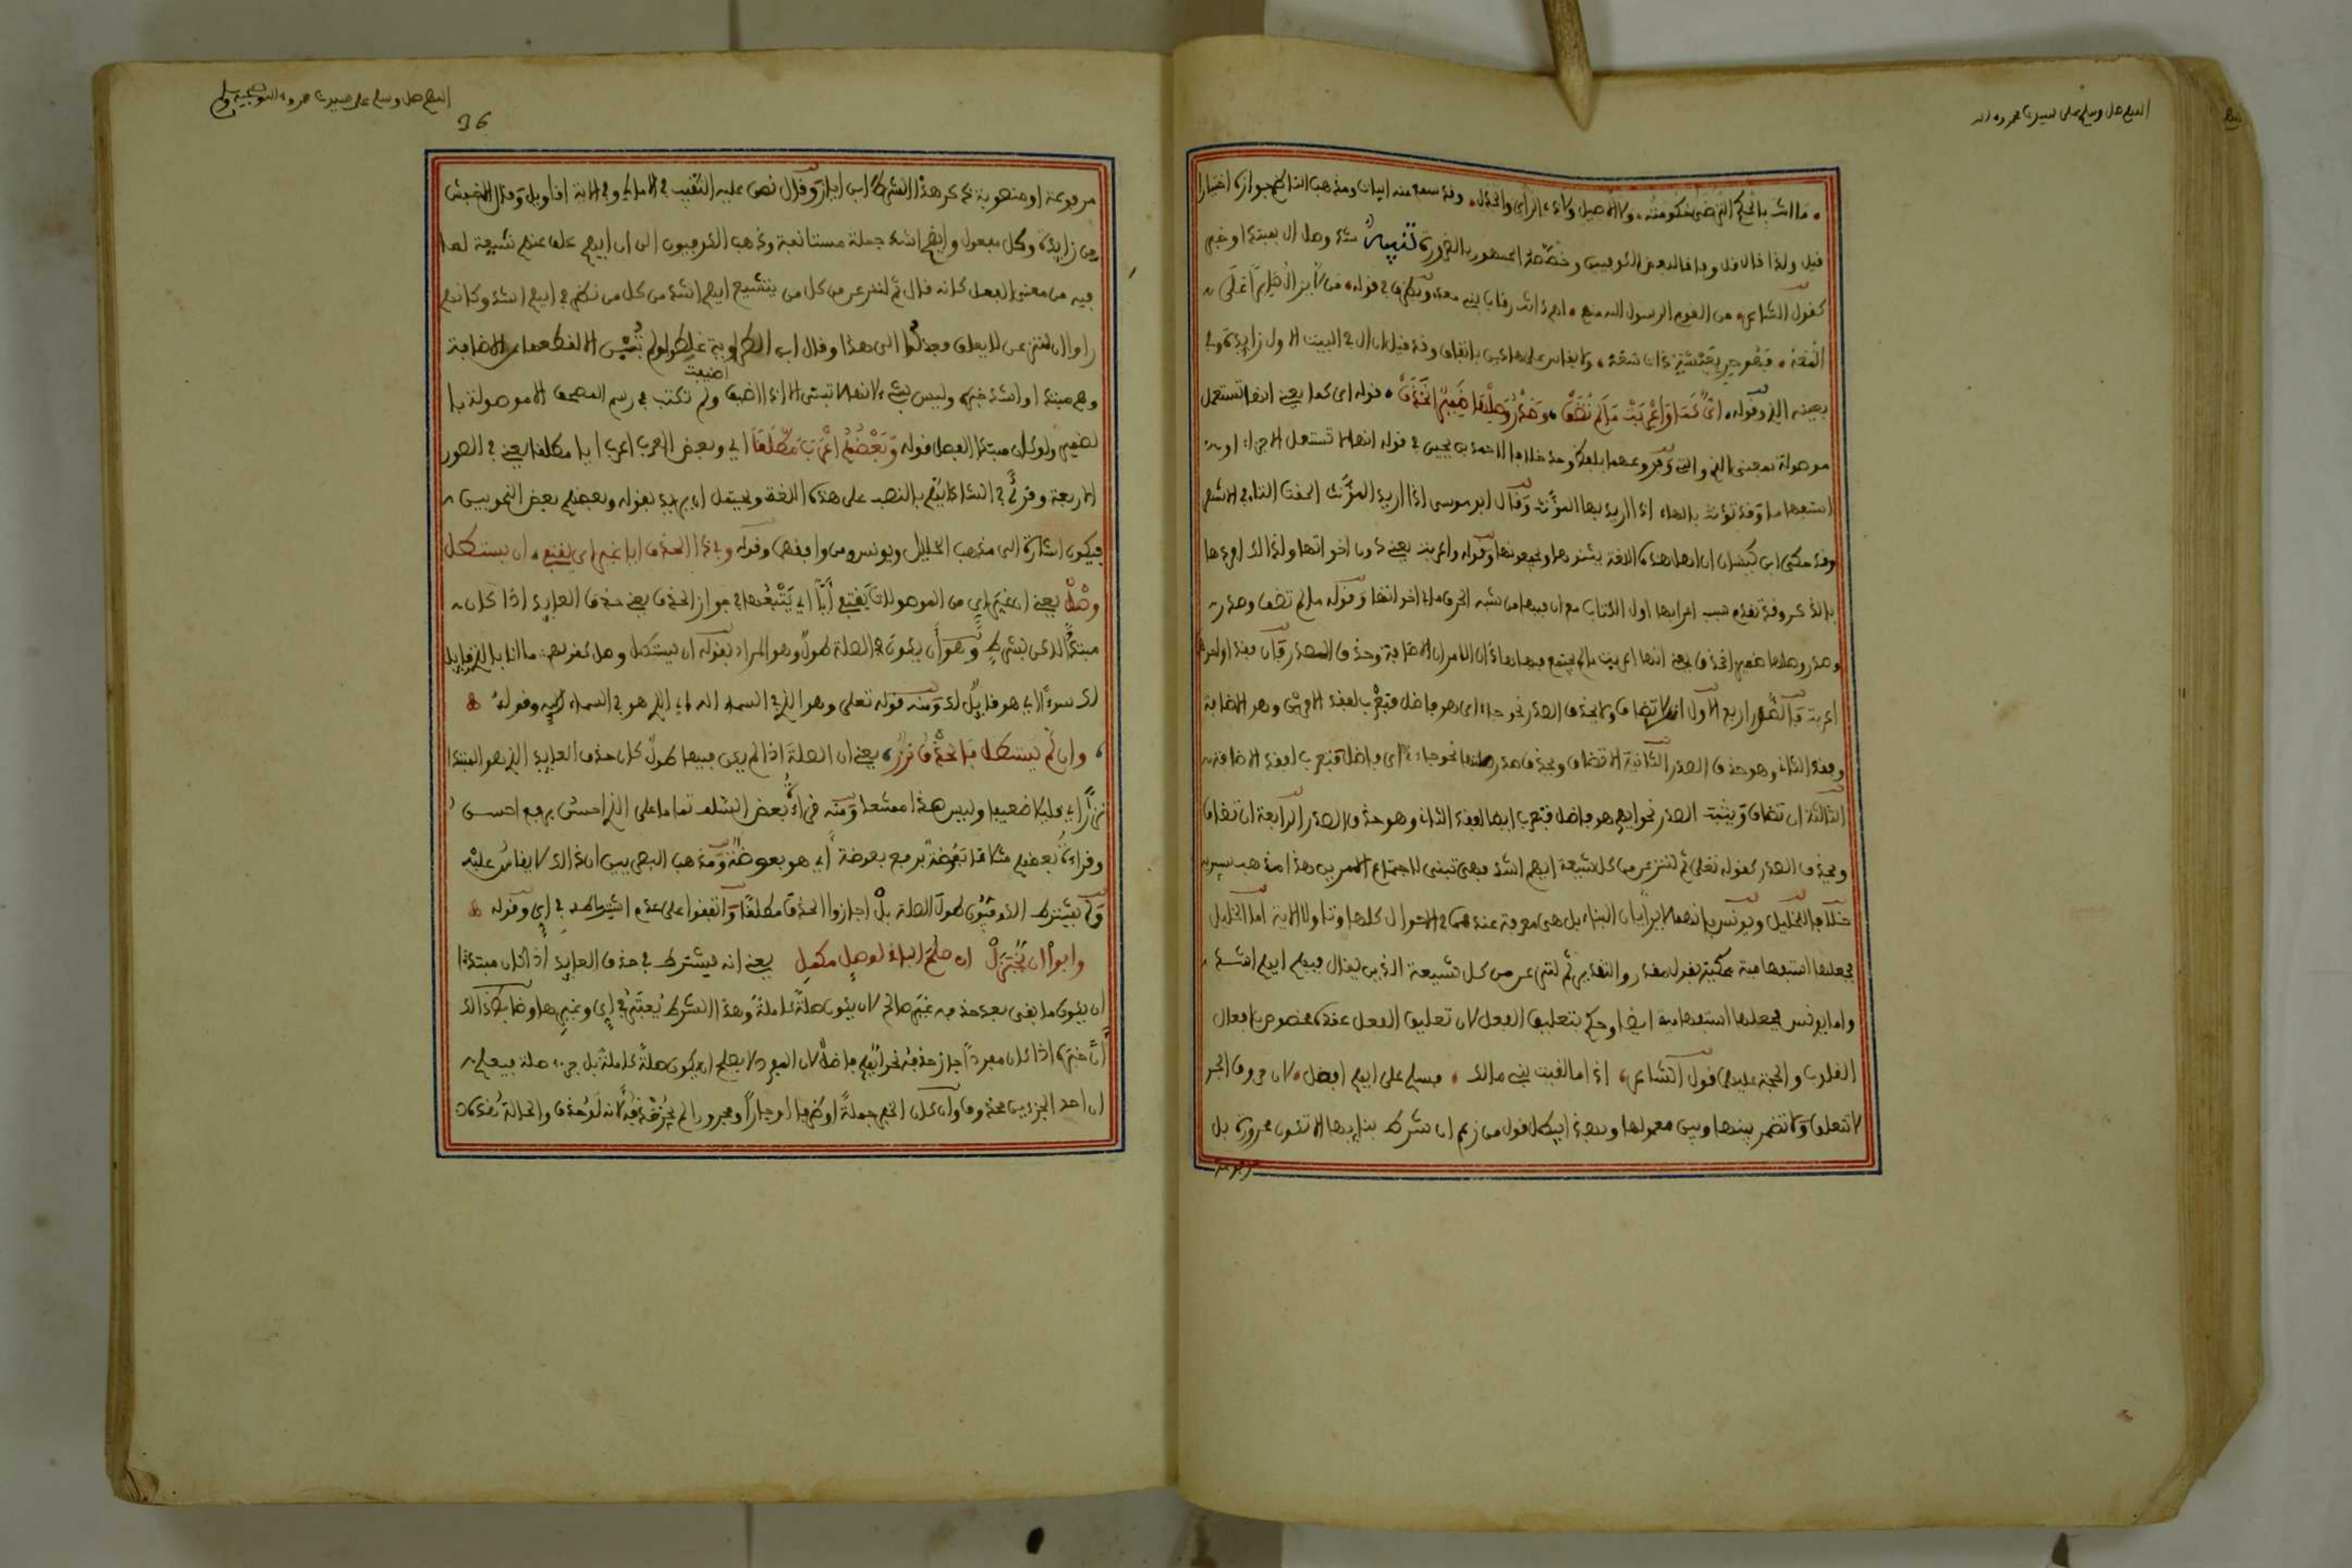 اللهم صل وسلم على سيدنا محمد وءاله
ما انت بالحكم الترضى حكومته ولا الاصيل ولا ذي الراي والجدل وقد سمع منه ابيات ومذهب الناظم جوازه اختيارا
قيل ولذا قال قل وبه قال بعض الكوفيين وخصه الجمهور بالضرورة تنبيه شذ وصل ال بمبتدا وخبر
كقول الشاعر من القوم الرسول الله منهم لهم دانت رقاب بني معد وبظرف في قوله من لا يزال شاكرا على
المعه فهو حر بعيشة ذات سعه ولا يقاس على هاذين باتفاق وقد قيل ان ال في البيت الاول زايدة وفي
بمعنى الذي وقوله اي كما واعربت ما لم تضف وصدر وصلها ضمير انحذف قوله اي كما يعني انها تستعمل
موصولة بمعنى الذي والتي وفروعهما بلفظ واحد خلافا لاحمد بن يحيى في قوله انها لا تستعمل الا جزاء او
استفهاما وقد تؤنث بالهاء اذا اريد بها المؤنث وقال ابو موسى اذا اريد المؤنث الحقت التاء في الاشهر
وقد حكى ابن كيسان ان اهل هذه اللغة يثنونها ويجمعونها وقوله واعربت يعني دون اخواتها ولذالك افردها
بالذكر وقد تقدم سبب اعرابها اول الكتاب مع ان فيها من شبه الحرف ما في اخواتها وقوله ما لم تضف وصدر
وصدر وصلها ضمير انحذف يعني انها اعربت ما لم يجتمع فيها هاذان الامران الاضافة وحذف الصدر فان فقد او احدهما
اعربت فالصور اربع الاول ان لا تضاف ولا يحذف الصدر نحو جاء اي هو فاضل فتعرب لفقد الامرين وهو الاضافة
وفقد الثاني وهو حذف الصدر الثانية الا تضاف ويحذف صدر صلتها نحو جاء اي فاضل فتعرب لفقد الاضافة
الثالثة ان تضاف ويثبت الصدر نحو ايهم هو فاضل فتعرب ايضا لفقد الثاني وهو حذف الصدر الرابعة ان تضاف
ويحذف الصدر كقوله تعلى ثم لننزعن من كل شيعة ايهم اشد فهي تبنى لاجتماع الامرين هذا مذهب سيبويه
خلافا للخليل ويونس فانهما لا يريان البناء بل هي معربة عندهما في الاحوال كلها وتاولا الاية اما الخليل
فجعلها استفهامية محكية بقول مقدر والتقدير ثم لننزعن من كل شيعة الذين يقال فيهم ايهم اشد
واما يونس فجعلها استفهامية ايضا وحكم بتعليق الفعل لان تعليق الفعل عنده غير مخصوص بافعال
القلوب والحجة عليهما قول الشاعر اذا ما لقيت بني مالك فسلم على ايهم افضل لان حروف الجر
لا تتعلق ولا تضمر بينها وبين معمولها وبهذا يبطل قول من زعم ان شرط بنايها الا تكون مجرورة بل
مرفوعة
اللهم صل وسلم على سيدنا محمد وءاله وصحبه وسلم
36
مرفوعة او منصوبة ذكر هذا الشرط ابن اياز وقال نص عليه النقيب في الامالي وفي الاية اقاويل وقال الاخفش
من زايدة وكل مفعول وايهم اشد جملة مستانفة وذهب الكوفيون الى ان ايهم علق عنهم شيعة لما
فيه من معنى الفعل كانه قال ثم لننزعن من كل من يتشيع ايهم اشد من كل من نظر في ايهم اشد وكانهم
راوا ان لننزعن لا يعلق فعدلوا الى هذا وقال ابن الطراوة غلطوا ولم تبن الا لقطعها عن الاضافة
وهم مبتدا واشد خبره وليس بشيء لانها لا تبنى الا اذا اضيفت ولم تكتب في رسم المصحف الا موصولة با
لضمير ولو كان مبتدا لفصل قوله وبعضهم اعرب مطلقا اي وبعض العرب اعرب ايا مطلقا يعني في الصور
الاربعة وقرئ في الشاذ ايهم بالنصب على هذه اللغة ويحتمل ان يريد بقوله وبعضهم بعض النحويين
فيكون اشارة الى مذهب الخليل ويونس ومن وافقهما وقوله وفي ذا الحذف ايا غير اي يقتفي ان يستطل
وصل يعني ان غير اي من الموصولات يقتفي ايا اي يتبعها في جواز الحذف يعني حذف العايد اذا كان
مبتدا لاكن بشرط وهو ان يكون في الصلة طول وهو المراد بقوله ان يستطل وصل كقولهم ما انا بالذي قايل
لك سوءا اي هو قايل لك ومنه قوله تعلى وهو الذي في السماء اله اي الذي هو في السماء اله وقوله
وان لم يستطل فالحذف نزر يعني ان الصلة اذا لم يكن فيها طول كان حذف العايد الذي هو المبتدا
نزرا اي قليلا ضعيفا وليس هذا ممتنعا ومنه قراءة بعض السلف تماما على الذي احسن برفع احسن
وقراءة بعضهم مثلا ما بعوضة برفع بعوضة اي هو بعوضة ومذهب البصريين ان ذالك لا يقاس عليه
ولم يشترط الكوفيون طول الصلة بل اجازوا الحذف مطلقا واتفقوا على عدم اشتراطه في اي وقوله
وابوا ان يختزل ان صلح الباقي لوصل مكمل يعني انه يشترط في حذف العايد اذا كان مبتدا
ان يكون ما بقي بعد حذفه غير صالح لان يكون صلة كاملة وهذا الشرط يعتبر في اي وغيرها وضابط ذالك
ان خبره اذا كان مفردا جاز حذفه نحو ايهم فاضل لان المفرد لا يصلح ان يكون صلة كاملة بل جزء صلة فيعلم
ان احد الجزءين محذوف وان كان الخبر جملة او ظرفا او جارا ومجرورا لم يجز حذفه لانه لو حذف والحالة هذه